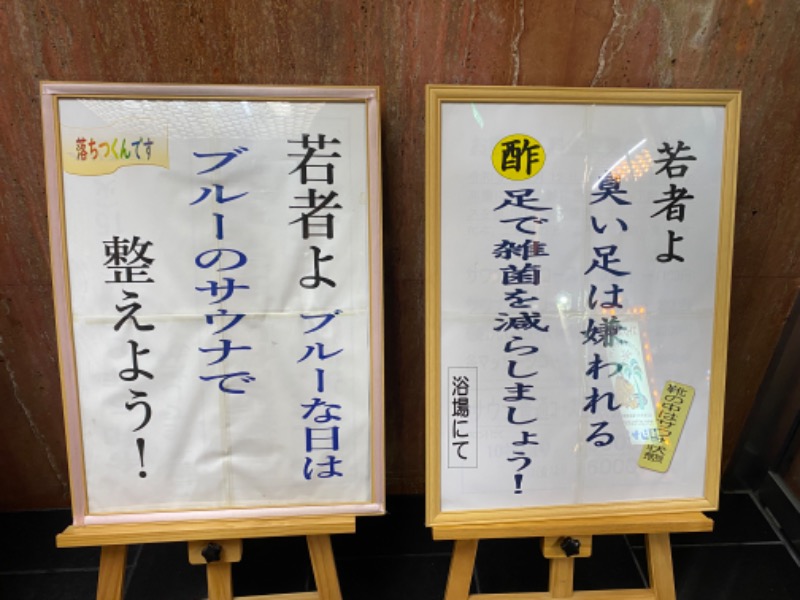 若者よ ブルーな日は
ブルーのサウナで
整えよう!
落ちつくんです
若者よ
臭い足は嫌われる
酢足で雑菌を減らしましょう!
浴場にて
靴の中はサウナ状態